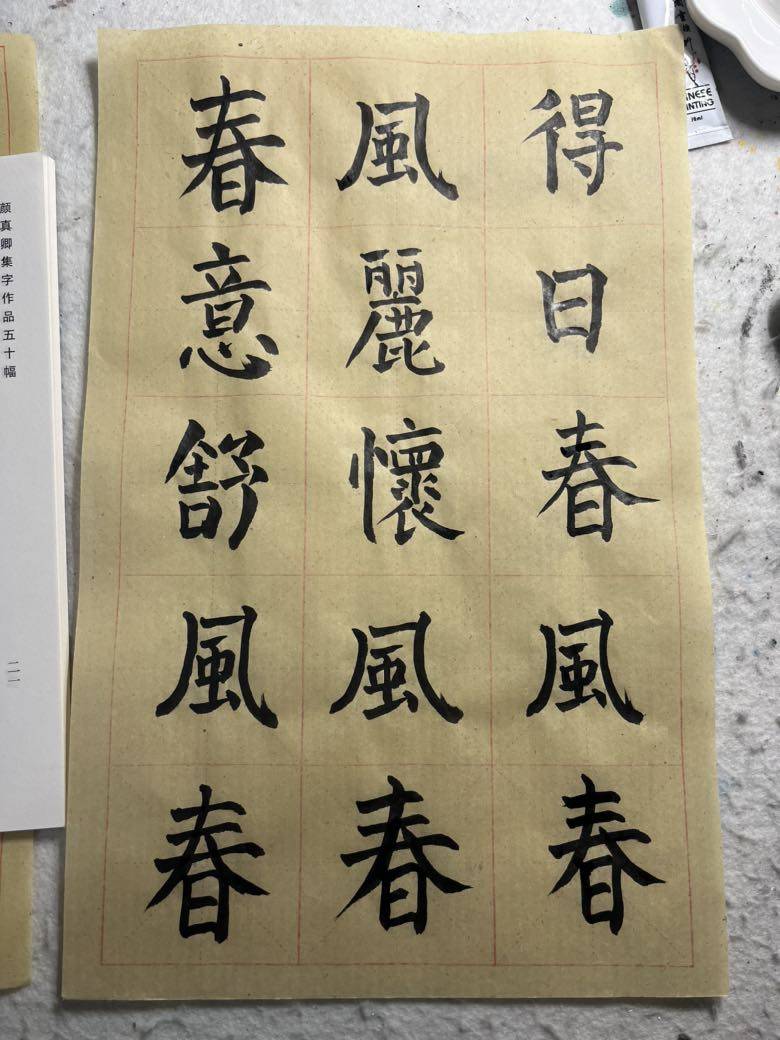 得日春風春
風麗懷風春
春意舒風春
颜真卿集字作品五十幅
二一
NESE
NTING
18ml